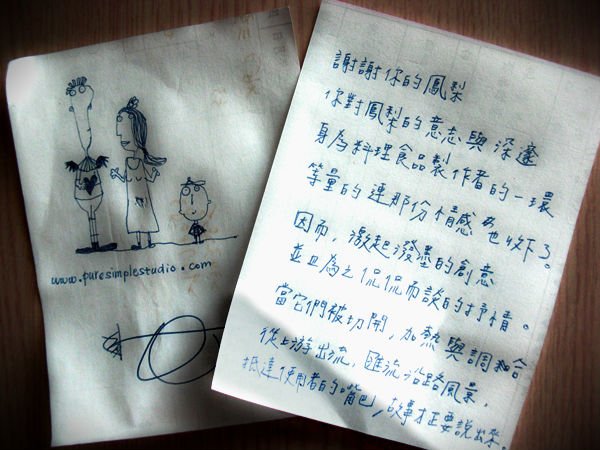 www.puresimplestudio.com
謝謝你的鳳梨
你對鳳梨的意志與深邃
身為料理食品製作者的一環
等量的連那份情感也收下了。
因而，激起潑墨的創意
並且為之侃侃而談的抒情。
當它們被切開，加熱與調和合
從上游出流，匯流沿路風景，
抵達使用者的嘴巴，故事才正要說出來。